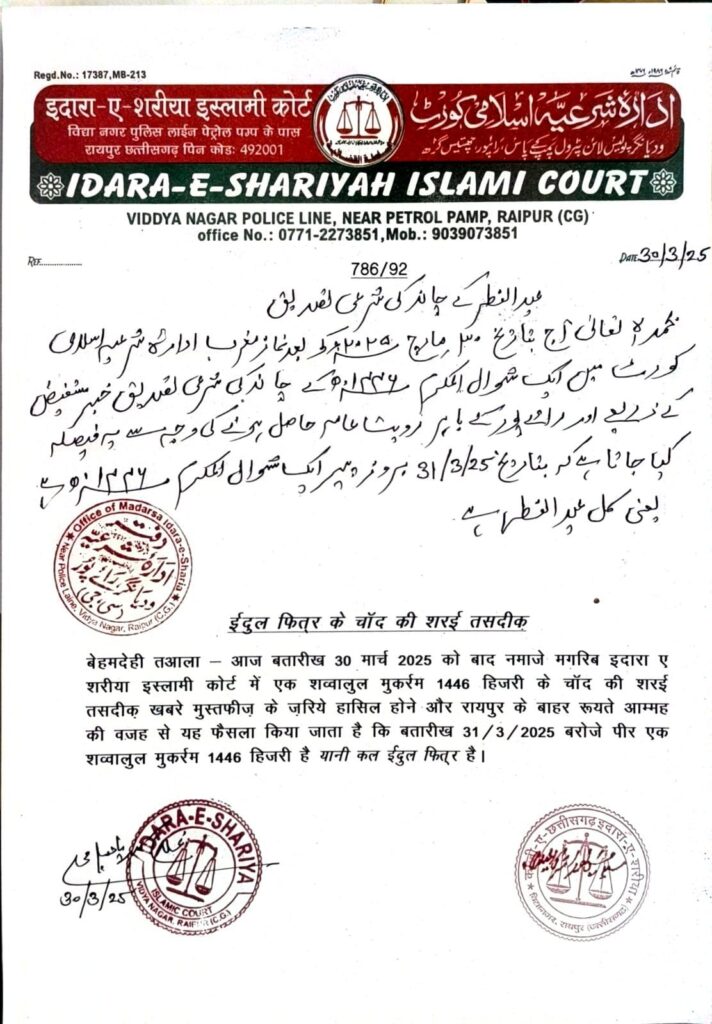 Regd.No.: 17387,MB-213
इदारा-ए-शरीया इस्लामी कोर्ट
विद्या नगर पुलिस लाईन पेट्रोल पम्प के पास
रायपुर छत्तीसगढ़ पिन कोडः 492001
ادارۂ شرعیہ اسلامی کورٹ
ودیانگر، پولیس لائن پٹرول پمپ کے پاس، رائپور، چھتیس گڑھ
IDARA-E-SHARIYAH ISLAMI COURT
VIDDYA NAGAR POLICE LINE, NEAR PETROL PAMP, RAIPUR (CG)
office No.: 0771-2273851,Mob.: 9039073851
REF..............
DATE 30/3/25
786/92
عید الفطر کے چاند کی شرعی تصدیق
بحمدہ تعالیٰ آج بتاریخ ۳۰ مارچ ۲۰۲۵ء کو بعد نماز مغرب ادارۂ شرعیہ اسلامی
کورٹ میں ایک شوال المکرم ۱۴۴۶ھ کے چاند کی شرعی تصدیق خبر مستفیض
کے ذریعے اور رائے پور کے باہر رویت عامہ حاصل ہونے کی وجہ سے یہ فیصلہ
کیا جاتا ہے کہ بتاریخ 31/3/25 بروز پیر ایک شوال المکرم ۱۴۴۶ھ ہے
یعنی کل عید الفطر ہے
Office of Madarsa Idara-e-Sharia
دفتر
ادارۂ شرعیہ
ودیانگر، رائے پور
(سی، جی)
Near Police Laine, Vidya Nagar, Raipur (C.G.)
ईदुल फित्र के चॉद की शरई तसदीक़
बेहमदेही तआला – आज बतारीख 30 मार्च 2025 को बाद नमाजे मगरिब इदारा ए
शरीया इस्लामी कोर्ट में एक शव्वालुल मुकर्रम 1446 हिजरी के चॉद की शरई
तसदीक़ खबरे मुस्तफीज़ के ज़रिये हासिल होने और रायपुर के बाहर रूयते आम्मह
की वजह से यह फैसला किया जाता है कि बतारीख 31/3/2025 बरोजे पीर एक
शव्वालुल मुकर्रम 1446 हिजरी है यानी कल ईदुल फित्र है।
IDARA-E-SHARIYA
ISLAMIC COURT
VIDYA NAGAR, RAIPUR (C.G.)
30/3/25
काज़ी-ए-छत्तीसगढ़ इदारा-ए-शरीया
विद्यानगर, रायपुर (छत्तीसगढ़)